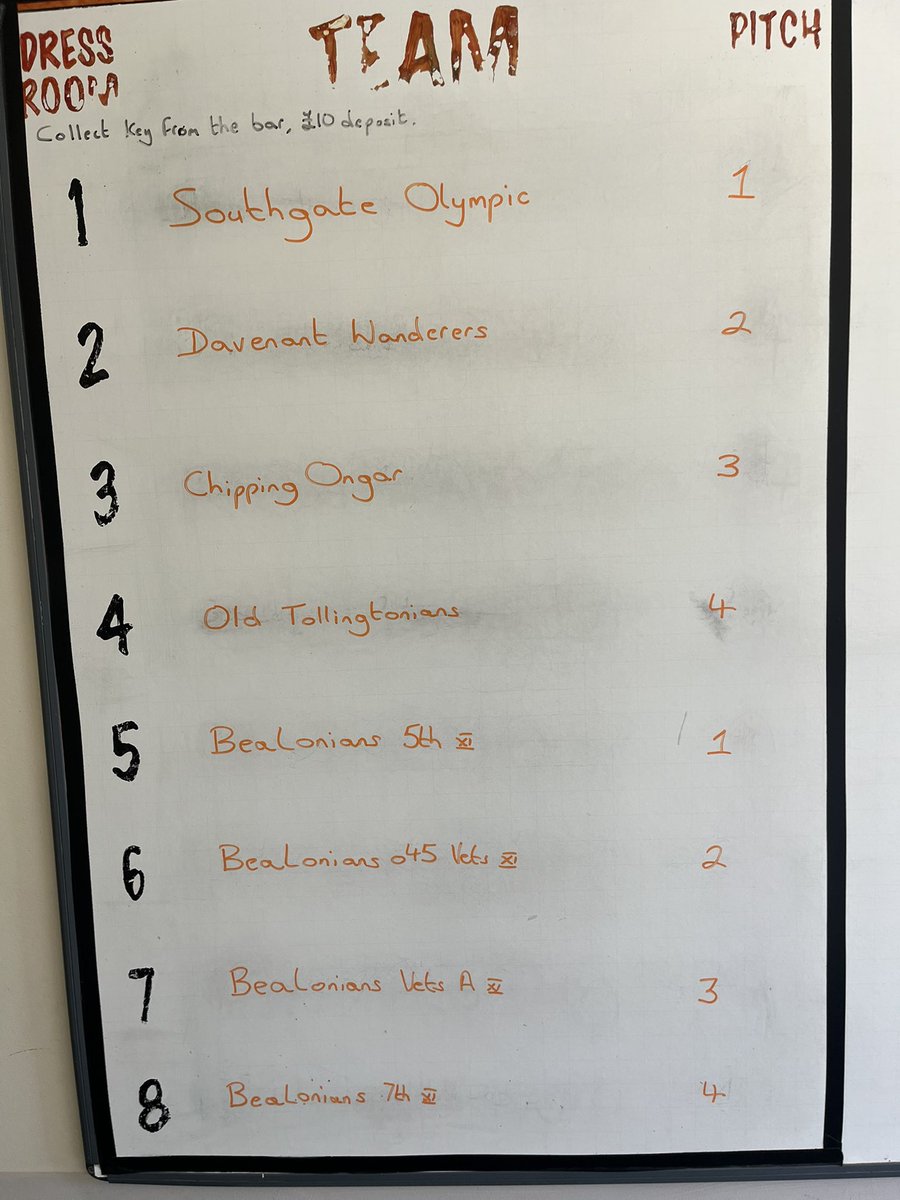 DRESS ROOM TEAM PITCH
Collect Key from the bar, £10 deposit.
1 Southgate Olympic 1
2 Davenant Wanderers 2
3 Chipping Ongar 3
4 Old Tollingtonians 4
5 Bealonians 5th XI 1
6 Bealonians o45 Vets XI 2
7 Bealonians Vets A XI 3
8 Bealonians 7th XI 4